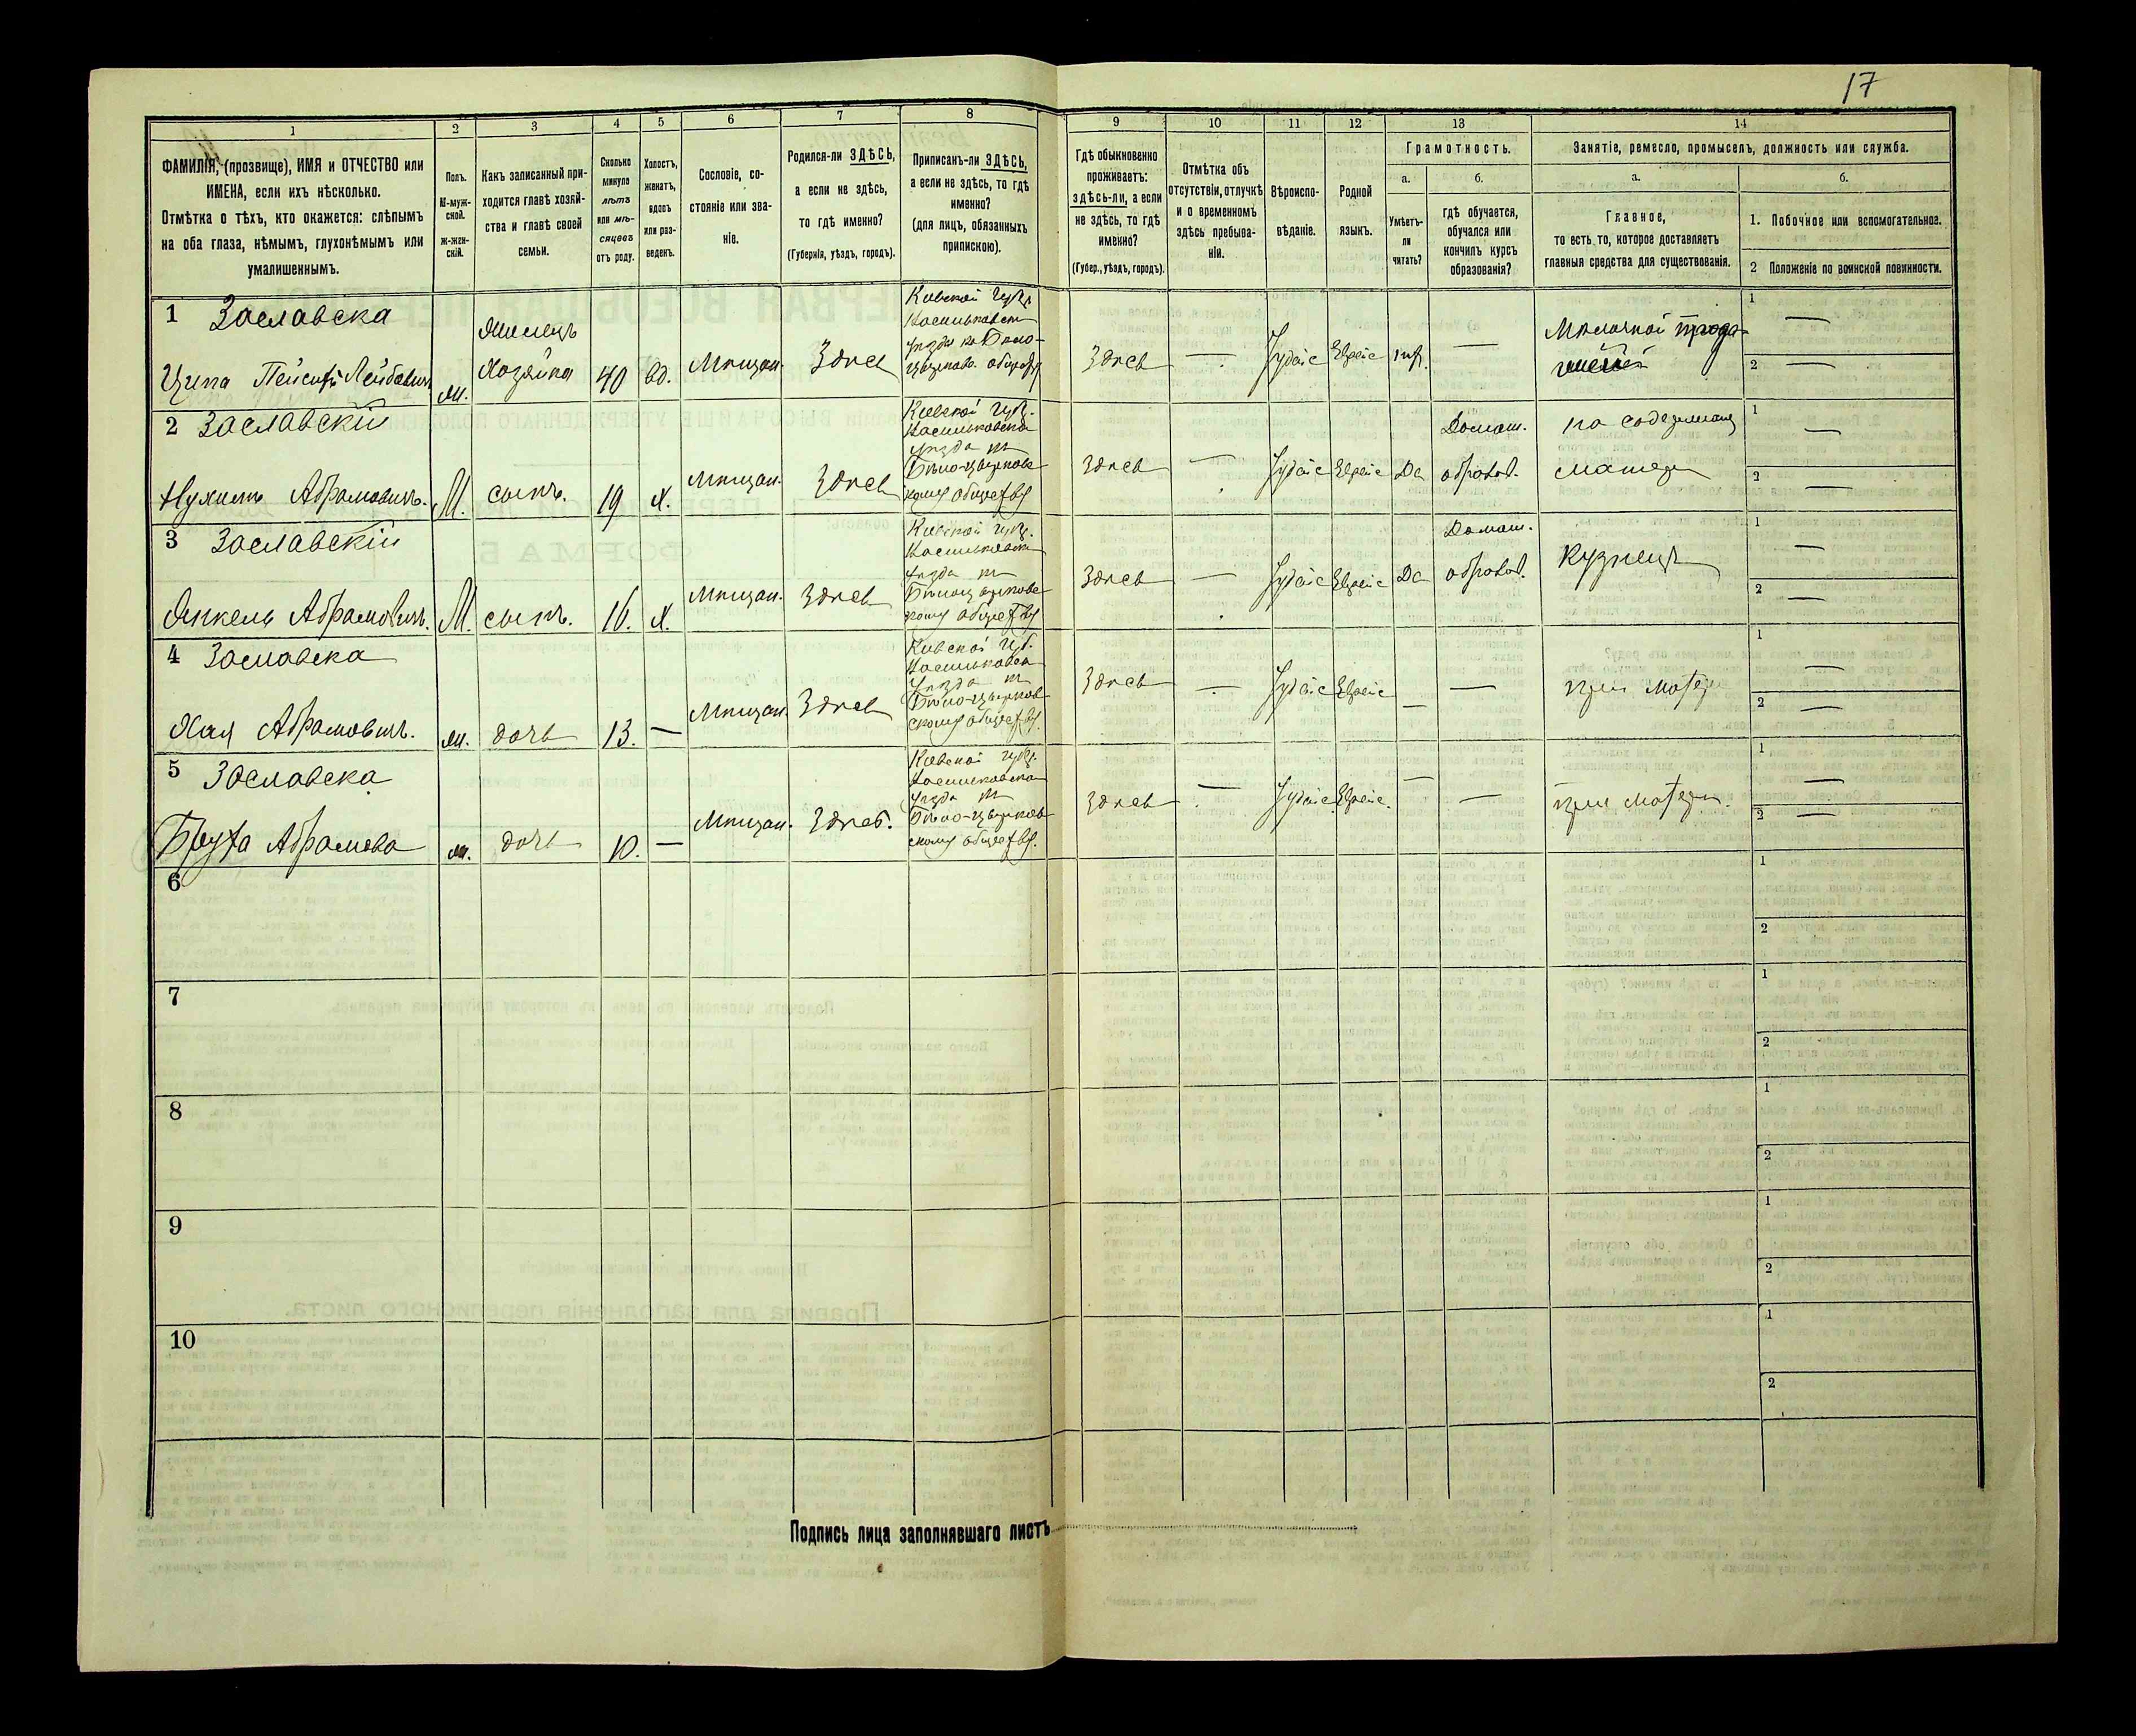 17
1 2 3 4 5 6 7 8 9 10 11 12 13 14
ФАМИЛІЯ, (прозвище), ИМЯ и ОТЧЕСТВО или
ИМЕНА, если ихъ нѣсколько.
Отмѣтка о тѣхъ, кто окажется: слѣпымъ
на оба глаза, нѣмымъ, глухонѣмымъ или
умалишеннымъ.
Полъ.
М-муж-
ской.
ж-жен-
скій.
Какъ записанный при-
ходится главѣ хозяй-
ства и главѣ своей
семьи.
Сколько
минуло
лѣтъ
или мѣ-
сяцевъ
отъ роду.
Холостъ,
женатъ,
вдовъ
или раз-
веденъ.
Сословіе, со-
стояніе или зва-
ніе.
Родился-ли ЗДѢСЬ,
а если не здѣсь,
то гдѣ именно?
(Губернія, уѣздъ, городъ).
Приписанъ-ли ЗДѢСЬ,
а если не здѣсь, то гдѣ
именно?
(для лицъ, обязанныхъ
припискою).
Гдѣ обыкновенно
проживаетъ:
здѣсь-ли, а если
не здѣсь, то гдѣ
именно?
(Губер., уѣздъ, городъ).
Отмѣтка объ
отсутствіи, отлучкѣ
и о временномъ
здѣсь пребыва-
ніи.
Вѣроиспо-
вѣданіе.
Родной
языкъ.
Грамотность.
а.
Умѣетъ-
ли
читать?
б.
гдѣ обучается,
обучался или
кончилъ курсъ
образованія?
Занятіе, ремесло, промыселъ, должность или служба.
а.
Главное,
то есть то, которое доставляетъ
главныя средства для существованія.
б.
1. Побочное или вспомогательное.
2 Положеніе по воинской повинности.
1 Заславска
Ципа
Хозяйка 40 вд. Мѣщан. Здѣсь
Кіевской губ.
Здѣсь — Іудейс Еврейс нѣт. —
Молочной
1 —
2 —
2 Заславскій
Нухимъ Абрамовичъ. М. сынъ. 19 х. Мѣщан. Здѣсь
Кіевской губ.
Васильковска
уѣзда
Бѣло-церковс
кому обществу
Здѣсь — Іудейс Еврейс Да
Домаш.
образов.
на содержаніи
матери
1 —
2 —
3 Заславскій
Янкель Абрамовичъ. М. сынъ. 16. х. Мѣщан. Здѣсь
Кіевской губ.
Васильковска
уѣзда
Бѣлоцерковс
кому обществу
Здѣсь — Іудейс Еврейс Да
Домаш.
образов.
Кузнецъ
1 —
2 —
4 Заславска
Хая Абрамовичъ. ж. дочь 13. — Мѣщан. Здѣсь
Кіевской губ.
Васильковска
уѣзда
Бѣло-церков
скому обществу.
Здѣсь — Іудейс Еврейс — —
при матери
1 —
2 —
5 Заславска
Бруха Абрамова ж. дочь 10. — Мѣщан. Здѣсь.
Кіевской губ.
Васильковска
уѣзда
Бѣло-церков
скому обществу.
Здѣсь — Іудейс Еврейс. — —
при матери.
1 —
2 —
6
1
2
7
1
2
8
1
2
9
1
2
10
1
2
Подпись лица заполнявшаго листъ